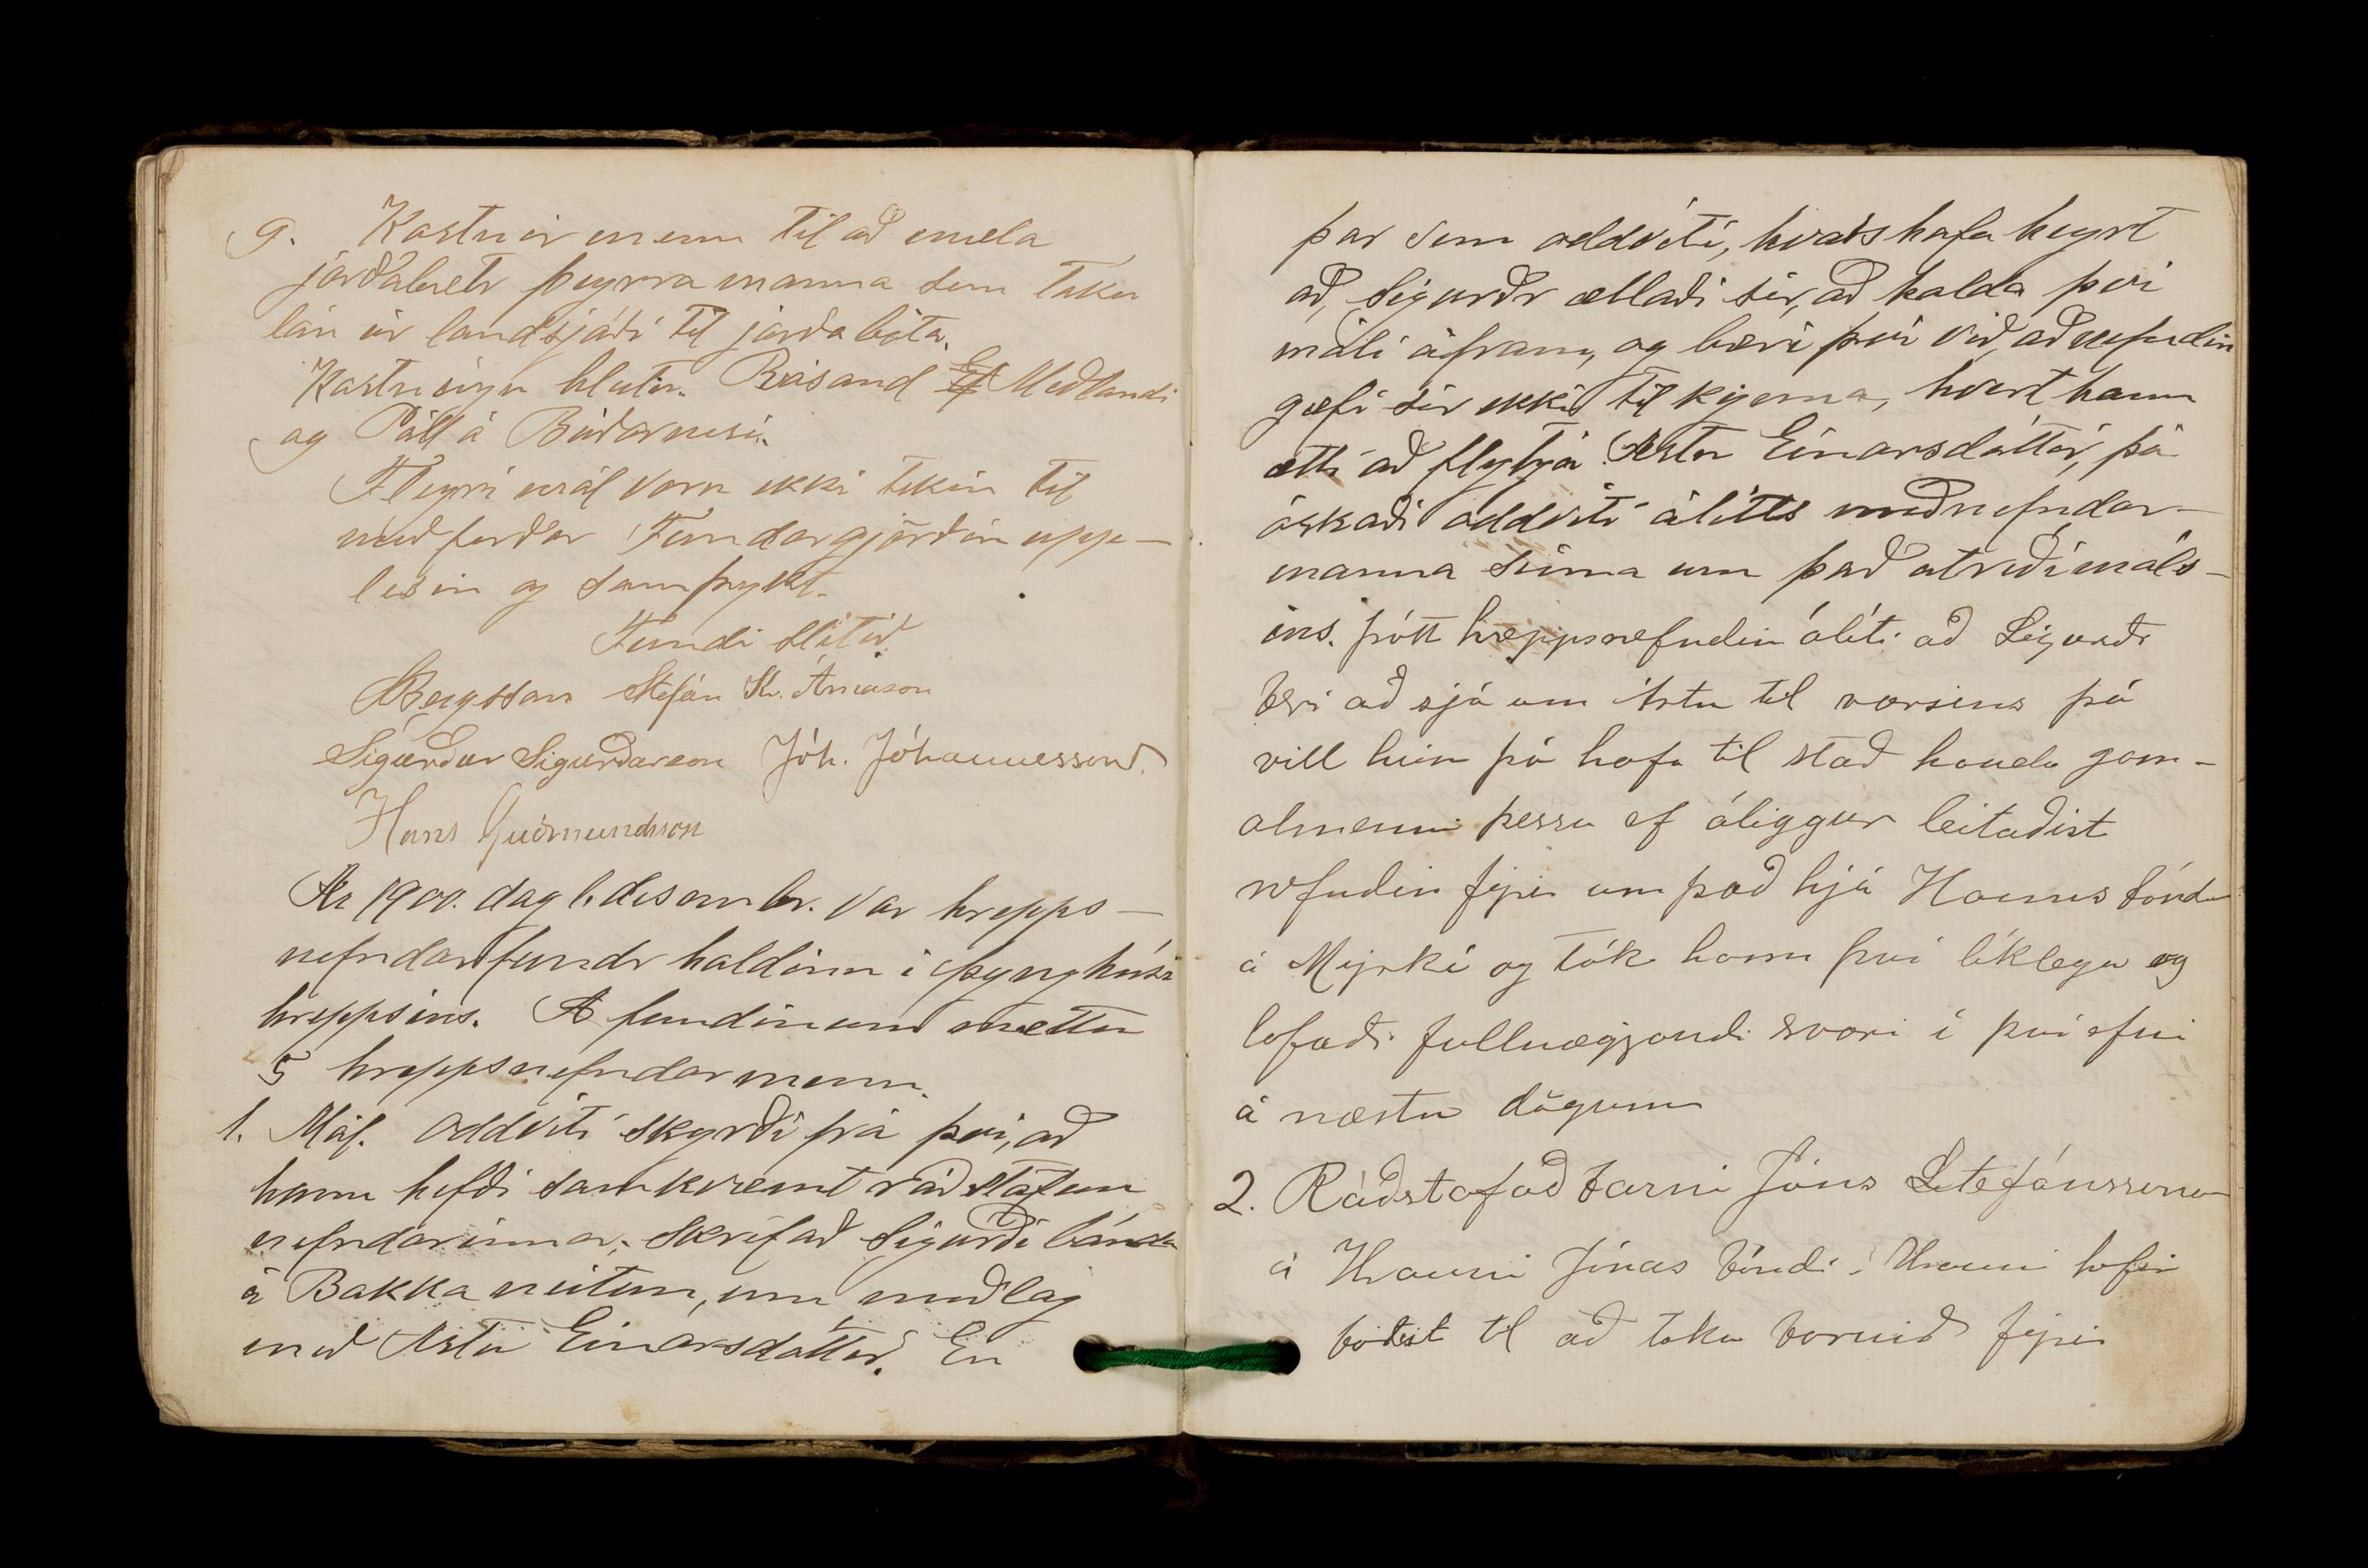 9. Kostnir menn til að mæla
jarðabætr þeyrra manna sem taka
lán úr landsjóði til jarðabóta.
Kostningu hlutu. Rósand Ef Medlandi
og Páll á Búðarnesi.
Fleyri mál voru ekki tekin til
meðferðar Fundargjörðin upp-
lesin og samþykt.
Fundi slitið.
Bergsson Stefán Kr. Árnason
Sigurður Sigurðarson Jóh. Jóhannesson.
Hans Guðmundsson
Ár 1900. dag 1. desember. var hrepps-
nefndarfundr haldinn i þynghúsi
hreppsins. Á fundinum mættu
5 hreppsnefndarmenn.
1. Mál. Oddviti skyrði frá þvi, að
hann hefði samkvæmt ráðstöfun
nefndarinnar, skrifað Sigurði bónda
á Bakka neitun, um meðlag
með Astu Einarsdóttur. En
þar sem oddviti, kvaðs hafa heyrt
að, Sigurðr ællaði sér, að halda þvi
máli áfram, og bæri þvi við, að nefndin
gæfi sér ekki til kynna, hvert hann
ætti að flytja Astu Einarsdóttir, þá
óskaði oddviti álitts meðnefndar-
manna sinna um það atriði máls-
ins. þótt hreppsnefndin áliti að Sigurðr
beri að sjá um Astu til vorsins þá
vill hún þó hafa til stað handa gam-
almenni þessu ef áliggur leitaðist
nefndin fyrir um það hjá Hannes bónda
á Myrká og tók hann þvi liklega og
lofaði fullnægjandi svari i þvi efni
á næstu dögum
2. Ráðstafað barni Jóns Stefánssonar
á Hrauni Jónas bóndi i Hrauni hefir
boðist til að taka barnið fyrir